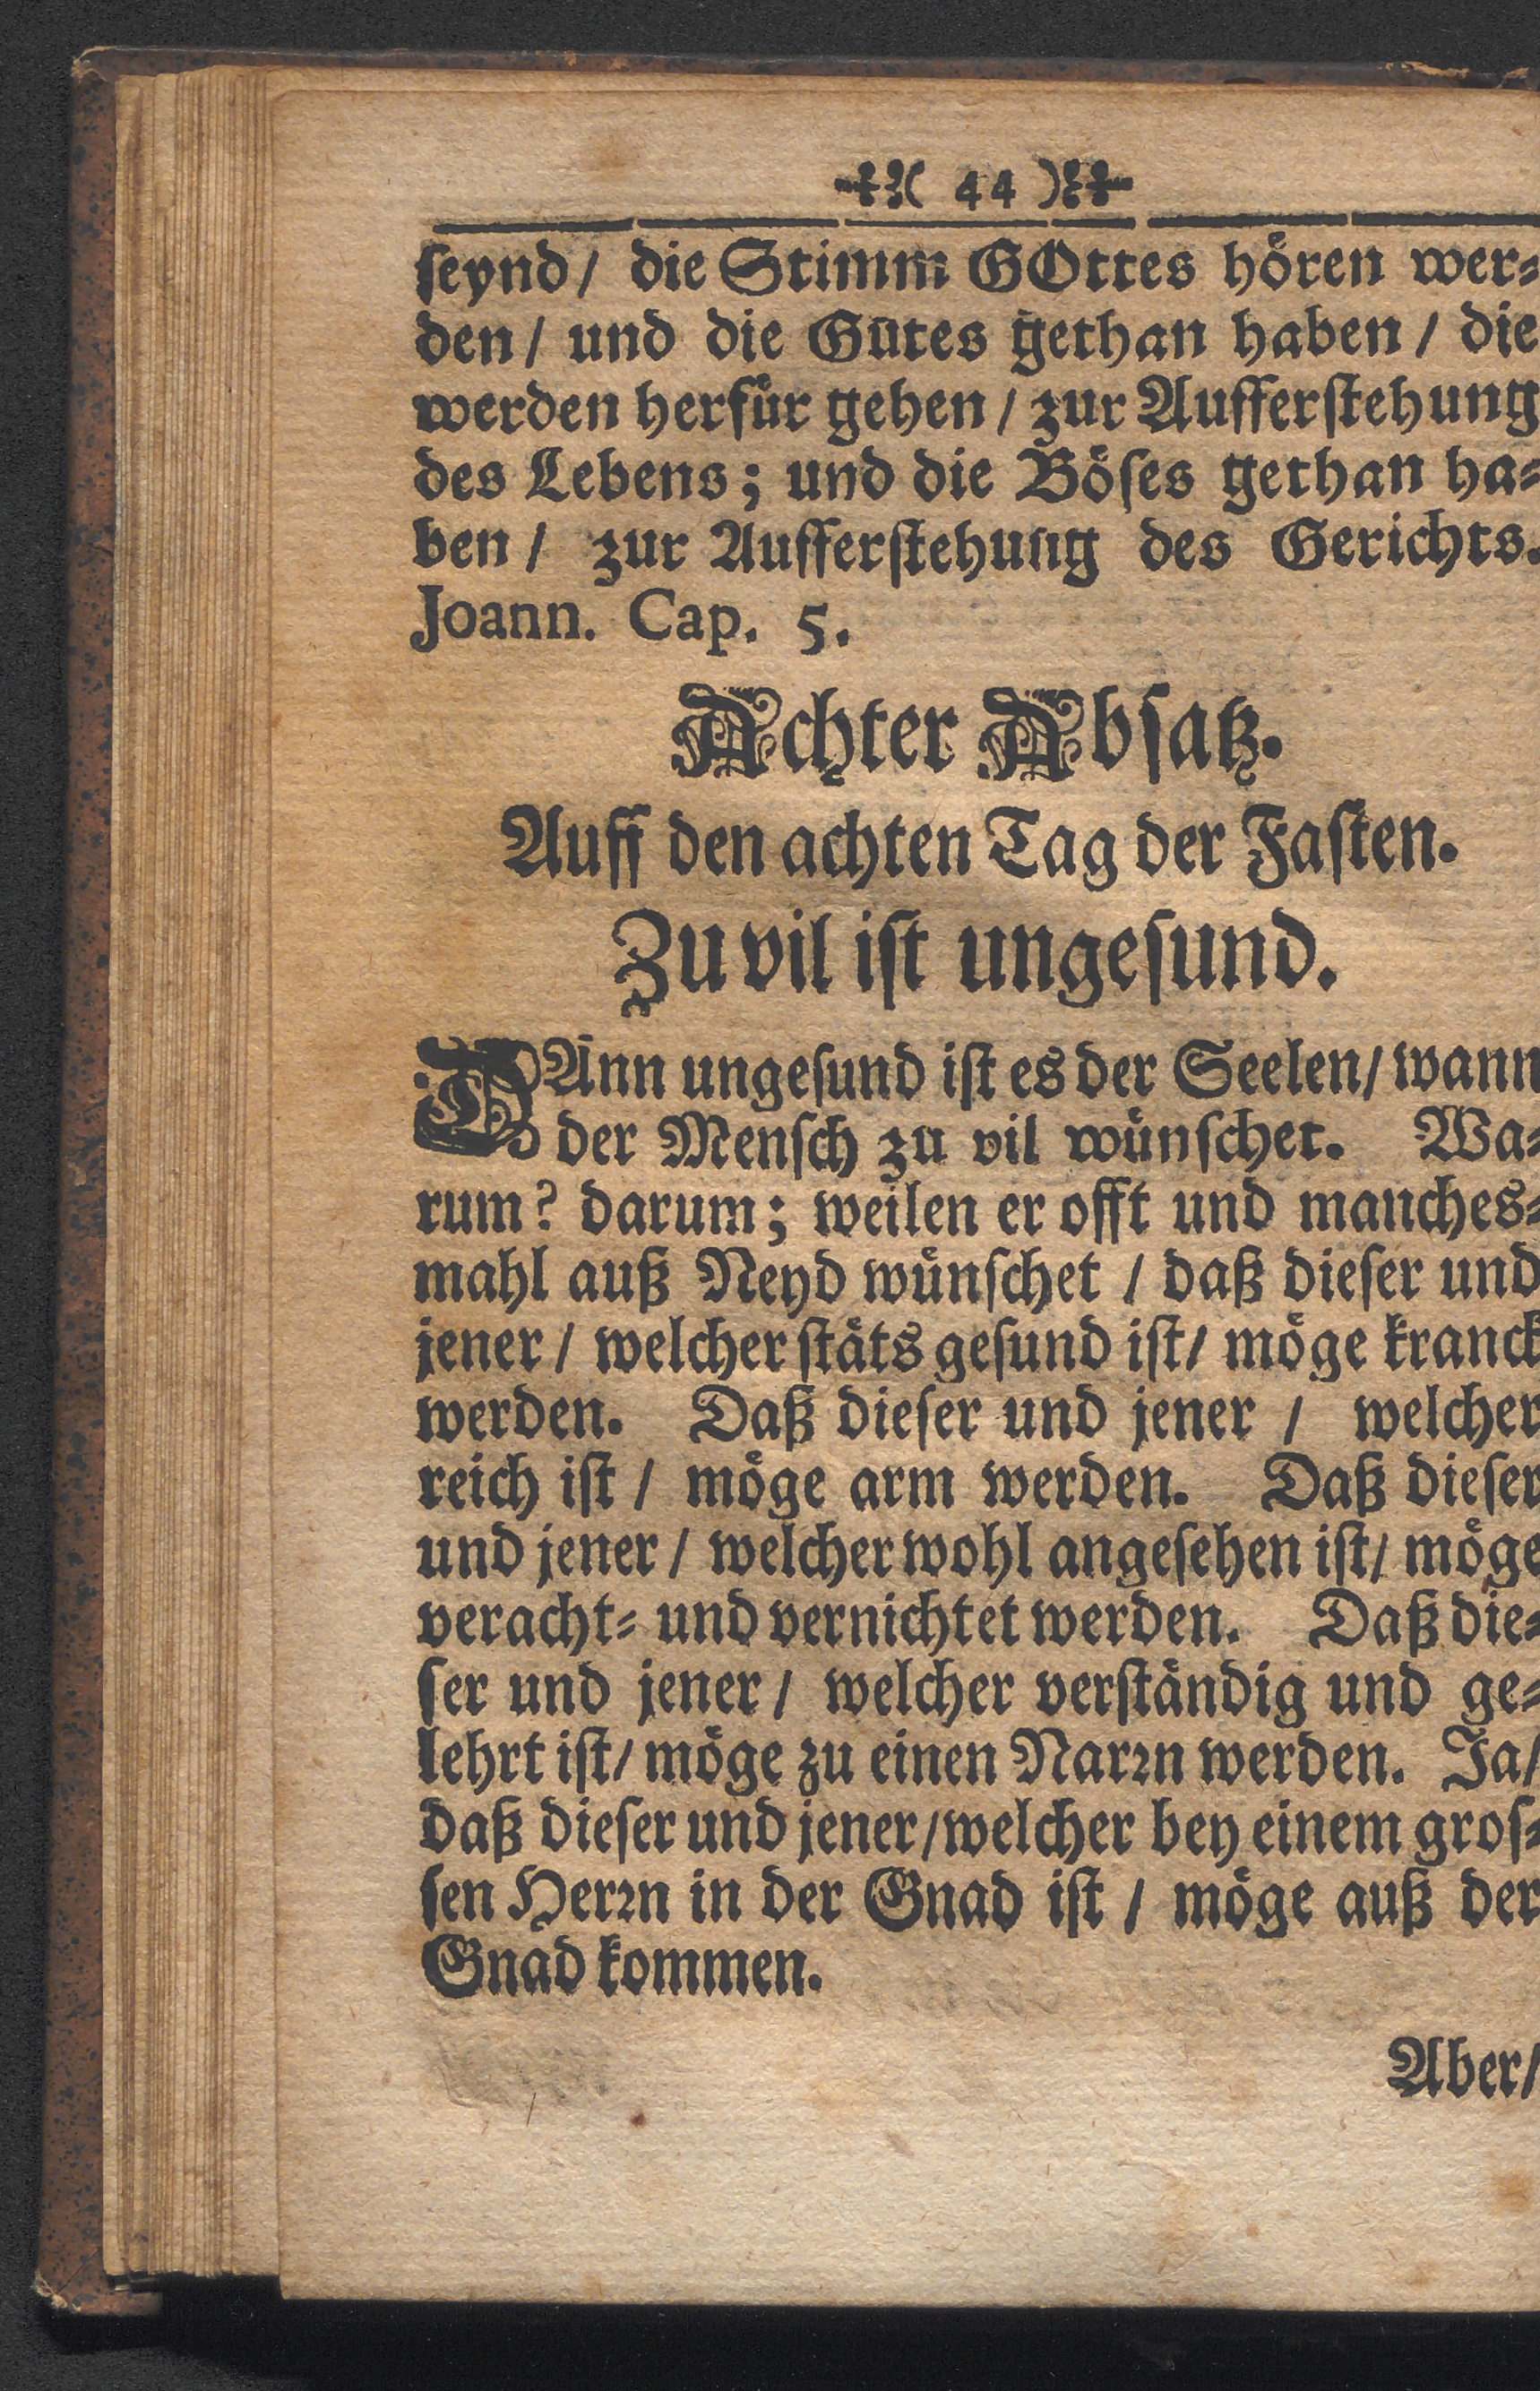 ( 44 )
ſeynd/ die Stimm GOttes hören wer⸗
den/ und die Gutes gethan haben/ die
werden herfür gehen/ zur Aufferſtehung
des Lebens; und die Böſes gethan ha⸗
ben/ zur Aufferſtehung des Gerichts.
Joann. Cap. 5.
Achter Abſatz.
Auff den achten Tag der Faſten.
Zu vil iſt ungeſund.
DAnn ungeſund iſt es der Seelen/ wann
der Menſch zu vil wünſchet. Wa⸗
rum? darum; weilen er offt und manches⸗
mahl auß Neyd wünſchet / daß dieſer und
jener / welcher ſtäts geſund iſt/ möge kranck
werden. Daß dieſer und jener / welcher
reich iſt / möge arm werden. Daß dieſer
und jener / welcher wohl angeſehen iſt/ möge
veracht⸗ und vernichtet werden. Daß die⸗
ſer und jener / welcher verſtändig und ge⸗
lehrt iſt/ möge zu einen Narꝛn werden. Ja/
daß dieſer und jener/welcher bey einem groſ⸗
ſen Herꝛn in der Gnad iſt / möge auß der
Gnad kommen.
Aber/